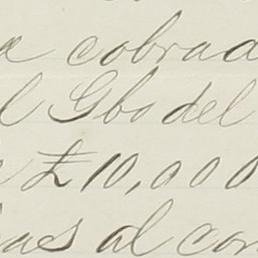 a cobrad
l Gbo del
£10,000
aes al con